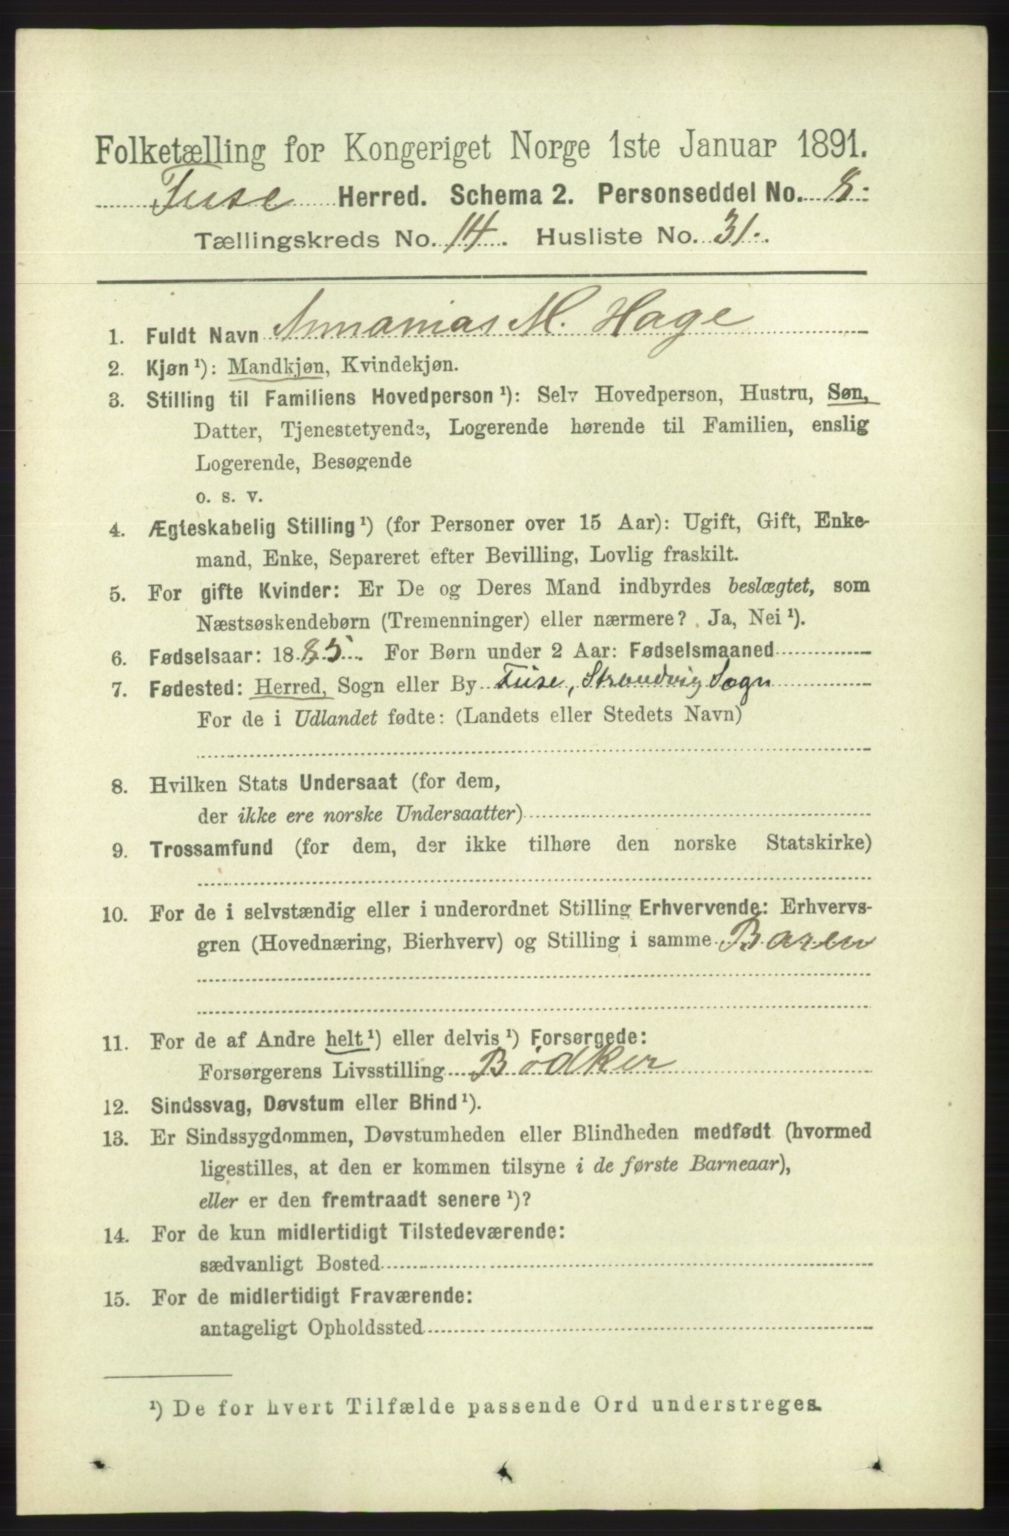 Folketælling for Kongeriget Norge 1ste Januar 1891.
Fuse Herred. Schema 2. Personseddel No. 8:
Tællingskreds No. 14. Husliste No. 31.
1. Fuldt Navn Annanias M. Hage
2. Kjøn¹): Mandkjøn, Kvindekjøn.
3. Stilling til Familiens Hovedperson¹): Selv Hovedperson, Hustru, Søn,
Datter, Tjenestetyende, Logerende hørende til Familien, enslig
Logerende, Besøgende
o. s. v.
4. Ægteskabelig Stilling¹) (for Personer over 15 Aar): Ugift, Gift, Enke-
mand, Enke, Separeret efter Bevilling, Lovlig fraskilt.
5. For gifte Kvinder: Er De og Deres Mand indbyrdes beslægtet, som
Næstsøskendebørn (Tremenninger) eller nærmere? Ja, Nei¹).
6. Fødselsaar: 1885. For Børn under 2 Aar: Fødselsmaaned
7. Fødested: Herred, Sogn eller By Fuse, Strandvig Sogn
For de i Udlandet fødte: (Landets eller Stedets Navn)
8. Hvilken Stats Undersaat (for dem,
der ikke ere norske Undersaatter)
9. Trossamfund (for dem, der ikke tilhøre den norske Statskirke)
10. For de i selvstændig eller i underordnet Stilling Erhvervende: Erhvervs-
gren (Hovednæring, Bierhverv) og Stilling i samme Baren
11. For de af Andre helt¹) eller delvis¹) Forsørgede:
Forsørgerens Livsstilling Bødker
12. Sindssvag, Døvstum eller Blind¹).
13. Er Sindssygdommen, Døvstumheden eller Blindheden medfødt (hvormed
ligestilles, at den er kommen tilsyne i de første Barneaar),
eller er den fremtraadt senere¹)?
14. For de kun midlertidigt Tilstedeværende:
sædvanligt Bosted
15. For de midlertidigt Fraværende:
antageligt Opholdssted
¹) De for hvert Tilfælde passende Ord understreges.